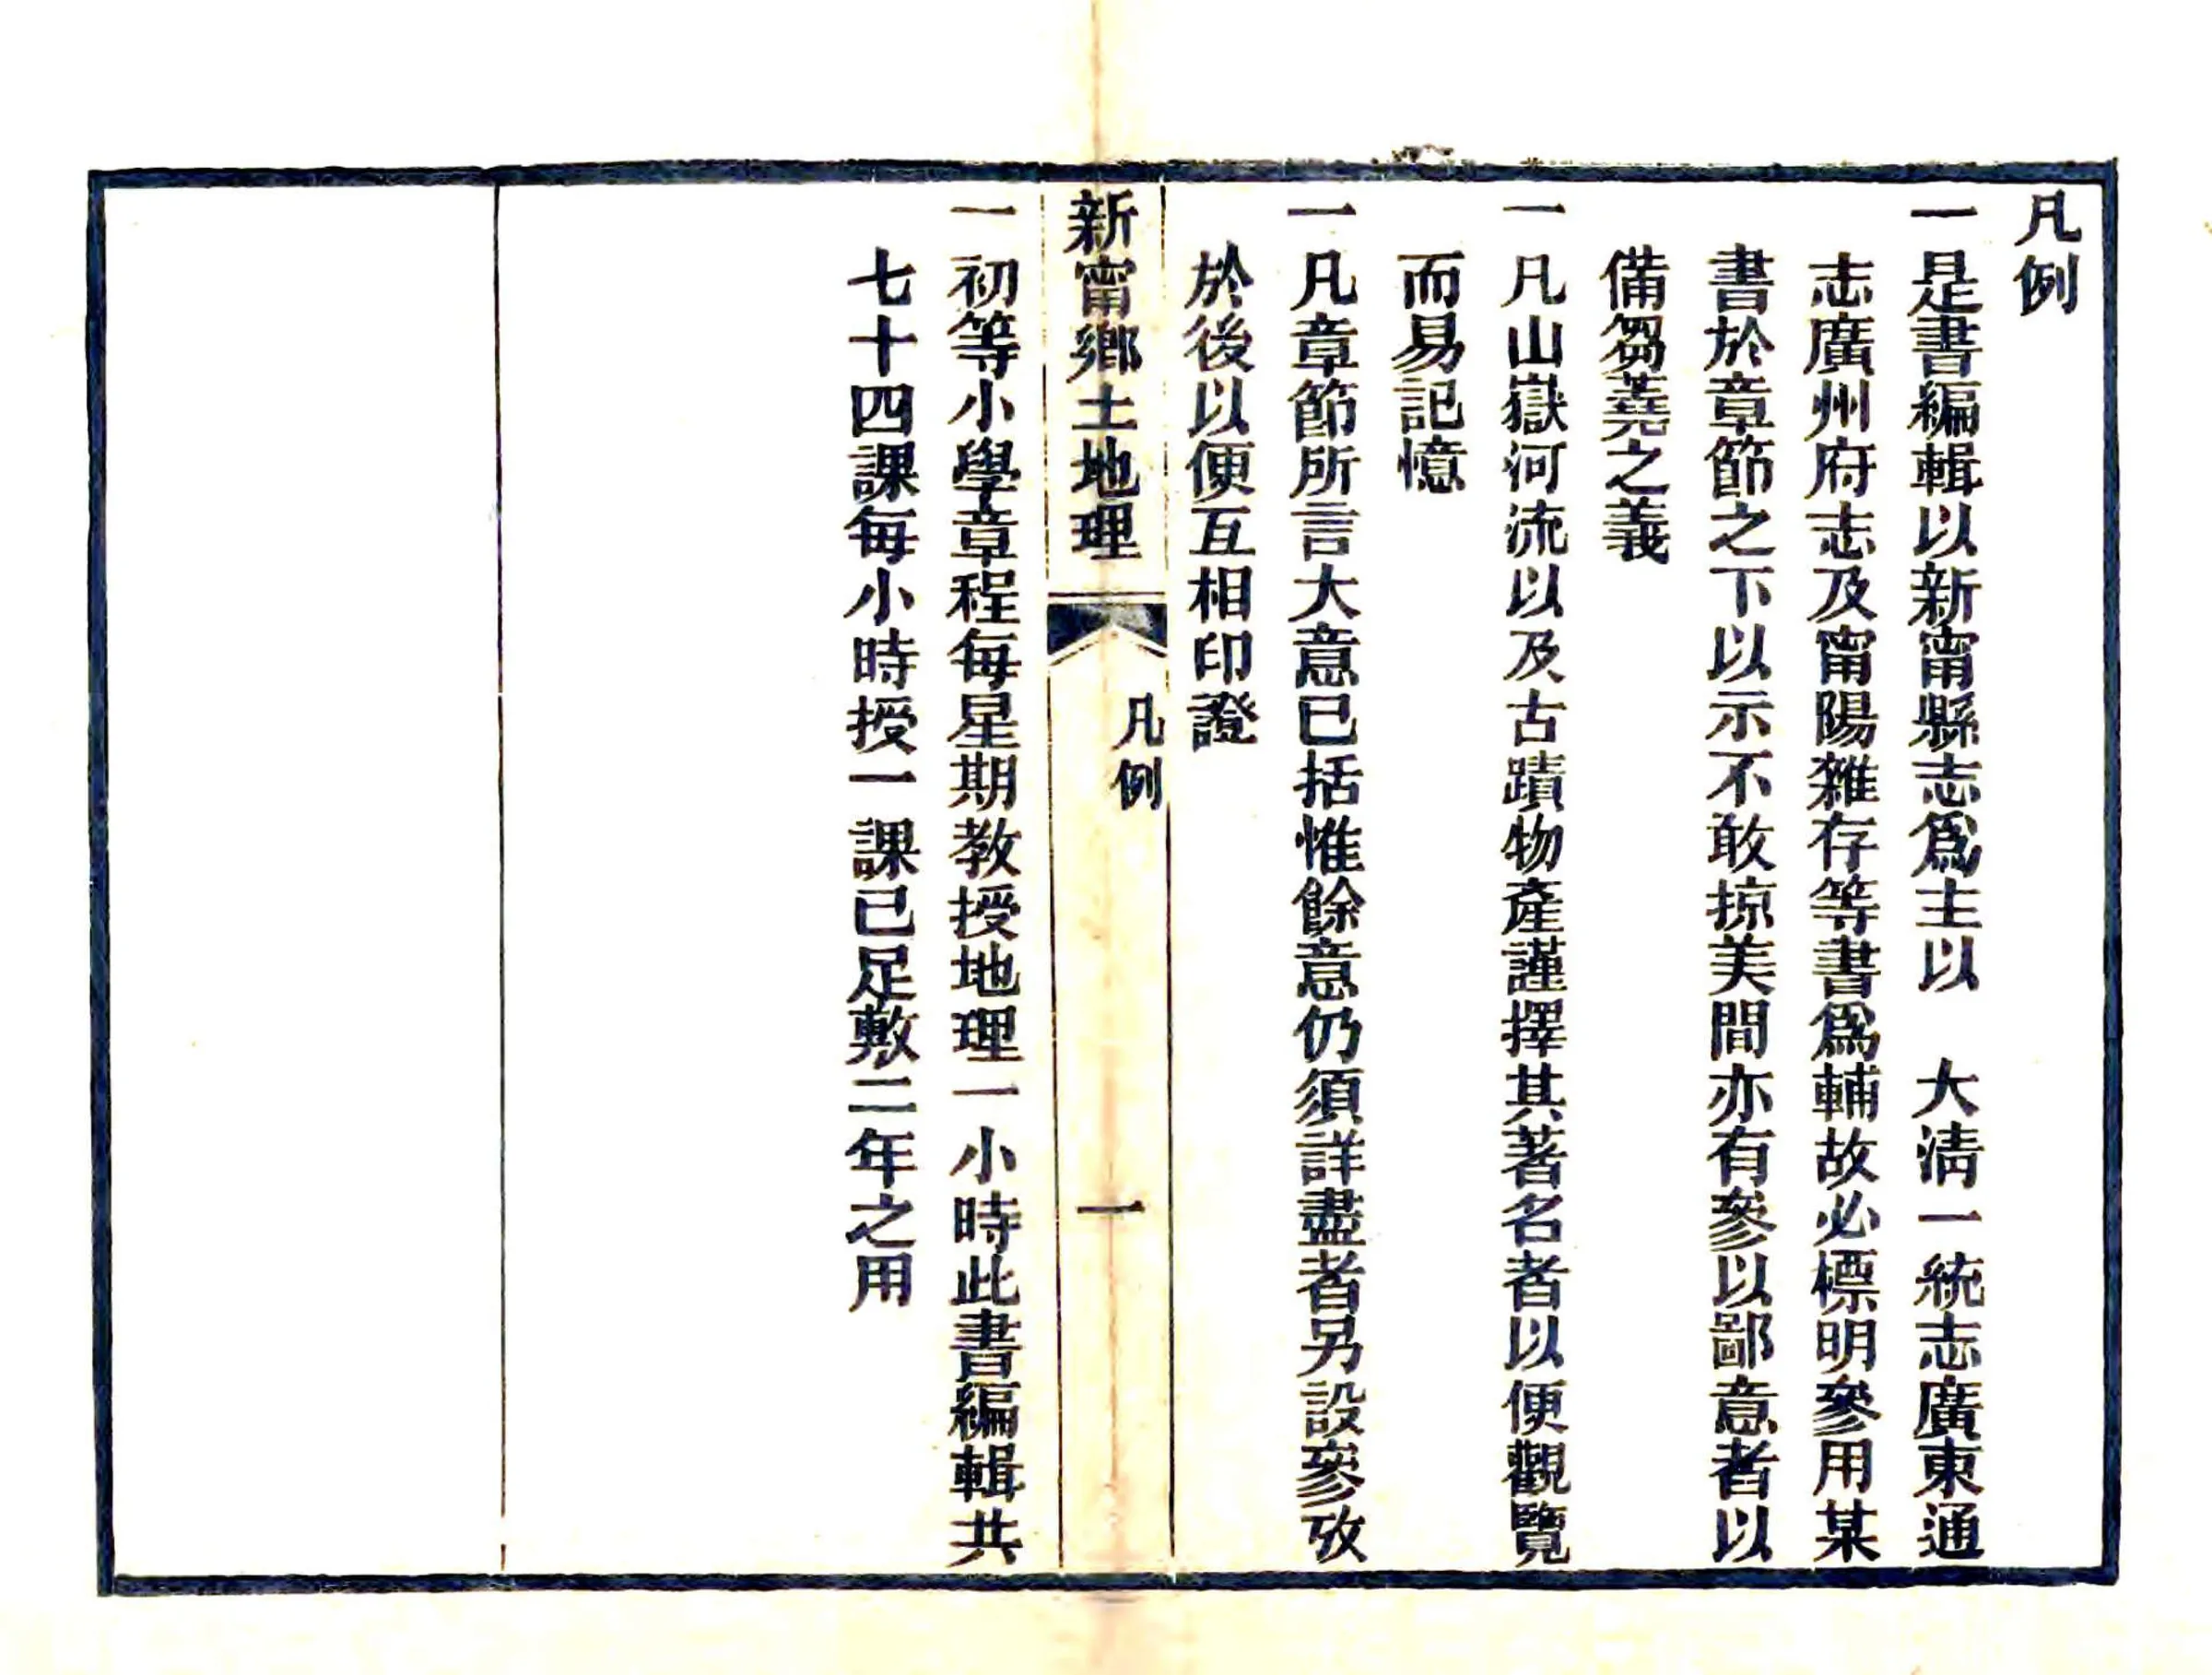 凡例
一是書編輯以新甯縣志爲主以　大淸一統志廣東通
志廣州府志及甯陽雜存等書爲輔故必標明參用某
書於章節之下以示不敢掠美間亦有參以鄙意者以
備芻蕘之義
一凡山嶽河流以及古蹟物產謹擇其著名者以便觀覽
而易記憶
一凡章節所言大意已括惟餘意仍須詳盡者另設參攷
於後以便互相印證
新甯鄉土地理　凡例　一
一初等小學章程每星期教授地理一小時此書編輯共
七十四課每小時授一課已足敷二年之用